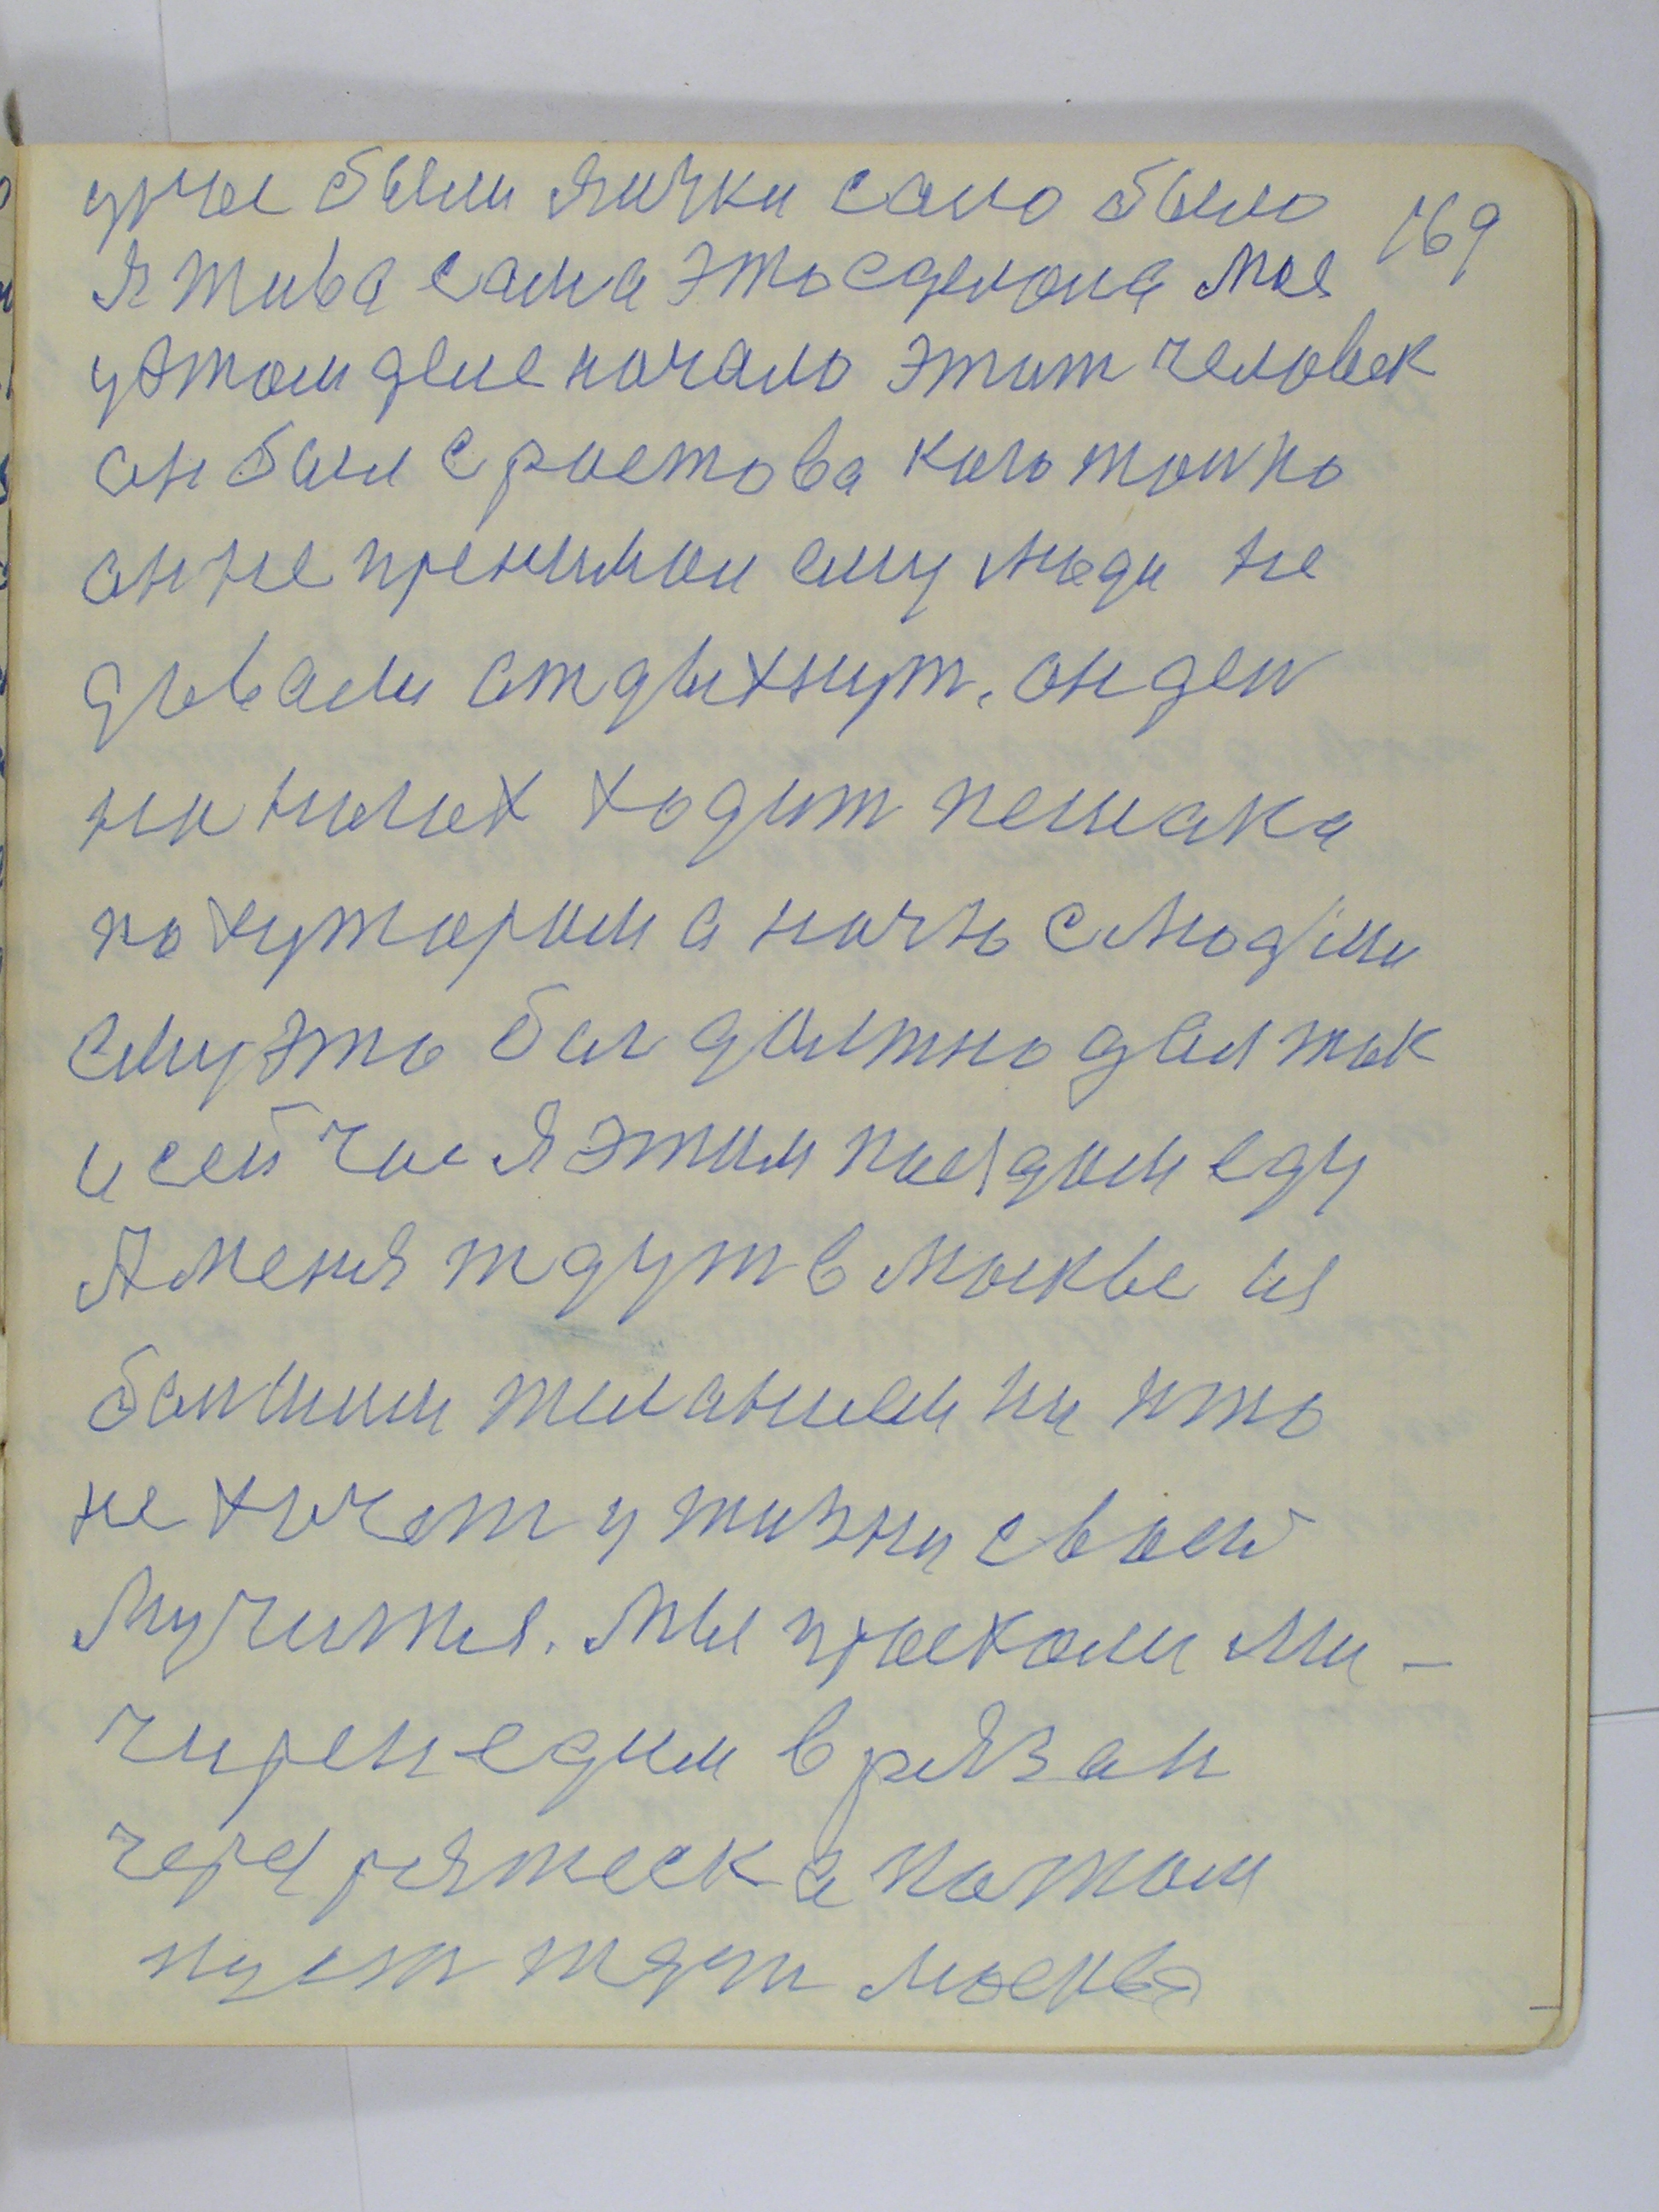 уже были яички сало было 169
я жива сама это сделала моя
у этом деле начало этит человек
он бал с ростова кого тойко
он не пренимал ему люди не
давали отдыхнут. он ден
на нагах ходит пешака
по хуторам а ночю с людми
ему это бог должно дал так
и сейчас я этим поездом еду
А меня ждут в москве из
балшим желанием ни кто
не хочет у жизни своей
мучится. Мы проехали Ми-
чурен едим в рязан
через ряжеск а потом
пуст ждет москва